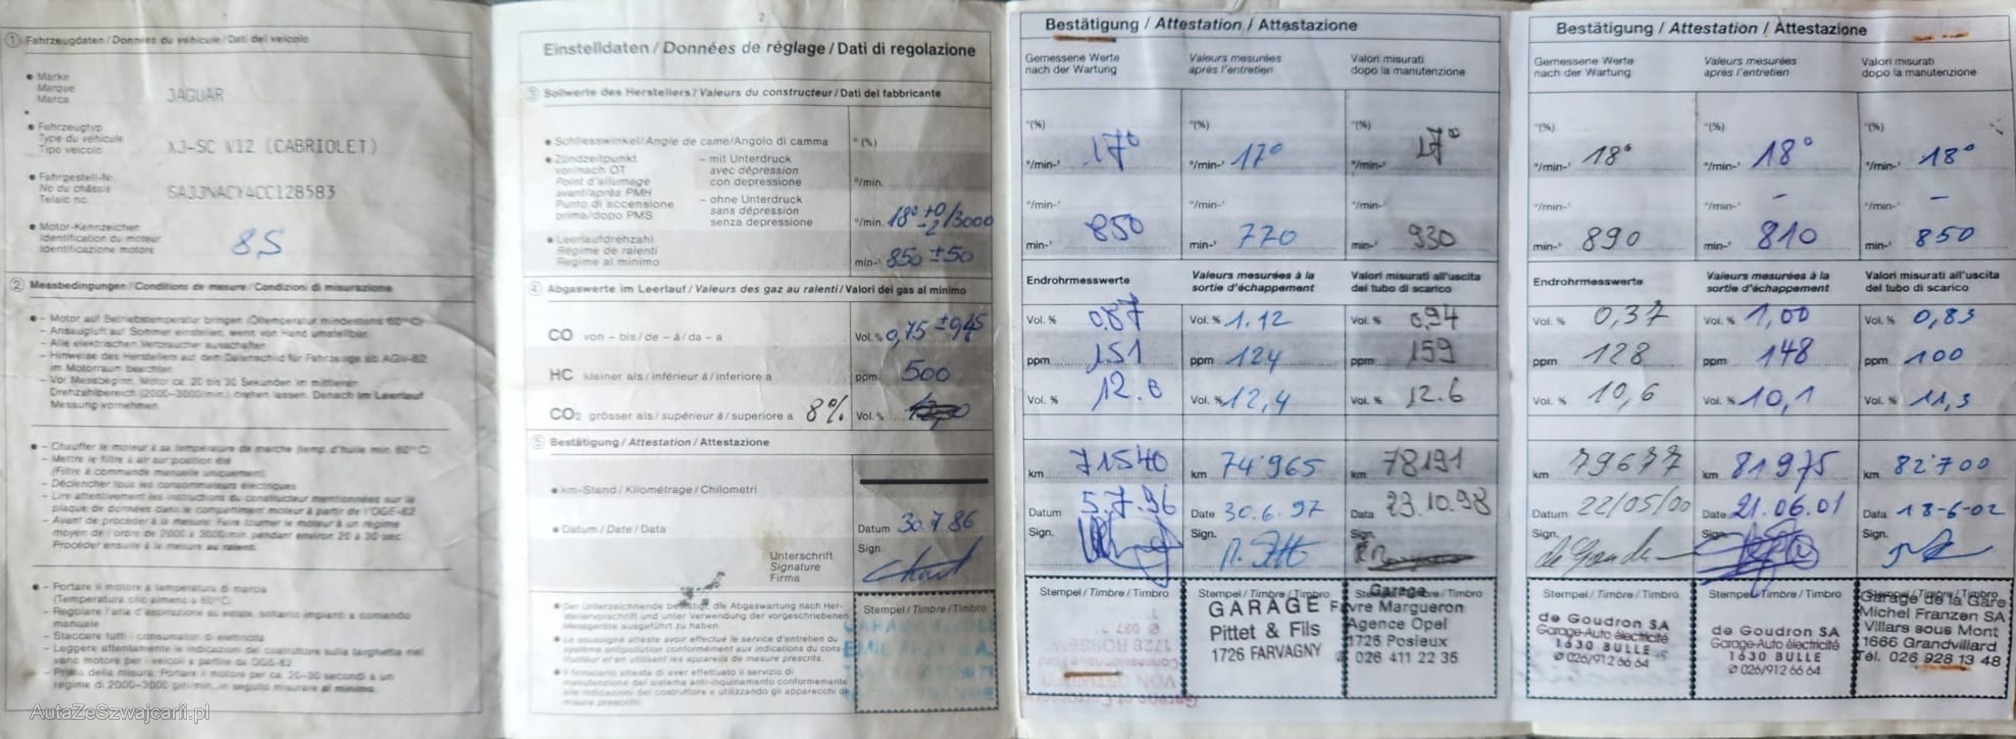 ① Fahrzeugdaten / Données du véhicule / Dati del veicolo
• Marke
Marque
Marca
JAGUAR
• Fahrzeugtyp
Type du véhicule
Tipo veicolo
XJ-SC V12 (CABRIOLET)
• Fahrgestell-Nr.
No du châssis
Telaio no
SAJJNACY4CC128583
• Motor-Kennzeichen
Identification du moteur
Identificazione motore
8S
② Messbedingungen / Conditions de mesure / Condizioni di misurazione
• – Motor auf Betriebstemperatur bringen (Öltemperatur mindestens 60°C)
– Alle elektrischen Verbraucher ausschalten
– Hinweise des Herstellers auf dem Datenschild für Fahrzeuge ab AGV-82
im Motorraum beachten
– Vor Messbeginn, Motor ca. 20 bis 30 Sekunden im mittleren
Drehzahlbereich (2000–3000/min.) drehen lassen. Danach im Leerlauf
Messung vornehmen.
• – Chauffer le moteur à sa température de marche (temp. d'huile min. 60°C)
– Mettre le filtre à air sur position été
(Filtre à commande manuelle uniquement)
– Déclencher tous les consommateurs électriques
– Lire attentivement les instructions du constructeur mentionnées sur la
plaque de données dans le compartiment moteur à partir de l'OGE-82
– Avant de procéder à la mesure: Faire tourner le moteur à un régime
moyen de l'ordre de 2000 à 3000/min. pendant environ 20 à 30 sec.
Procéder ensuite à la mesure au ralenti.
• – Portare il motore a temperatura di marcia
(Temperatura olio almeno a 60°C)
– Regolare l'aria d'aspirazione su estate, soltanto impianti a comando
manuale
– Staccare tutti i consumatori di elettricità
– Leggere attentamente le indicazioni del costruttore sulla targhetta nel
vano motore per i veicoli a partire da OGE-82
– Prima della misura: Portare il motore per ca. 20–30 secondi a un
regime di 2000–3000 giri/min., in seguito misurare al minimo.
AutaZeSzwajcarii.pl
2
Einstelldaten / Données de réglage / Dati di regolazione
③ Sollwerte des Herstellers / Valeurs du constructeur / Dati del fabbricante
• Schliesswinkel / Angle de came / Angolo di camma ° (%)
• Zündzeitpunkt – mit Unterdruck
vor/nach OT avec dépression
Point d'allumage con depressione °/min.
avant/après PMH
Punto di accensione – ohne Unterdruck
prima/dopo PMS sans dépression
senza depressione °/min. 18° +0 -2 /3000
• Leerlaufdrehzahl
Régime de ralenti
Regime al minimo min-¹ 850 ±50
④ Abgaswerte im Leerlauf / Valeurs des gaz au ralenti / Valori dei gas al minimo
CO von – bis / de – à / da – a Vol. % 0,75 ±0,45
HC kleiner als / inférieur à / inferiore a ppm 500
CO₂ grösser als / supérieur à / superiore a 8% Vol. %
⑤ Bestätigung / Attestation / Attestazione
• km-Stand / Kilométrage / Chilometri
• Datum / Date / Data Datum 30.7.86
Unterschrift Sign.
Signature
Firma
• Der Unterzeichnende bestätigt, die Abgaswartung nach Her-
stellervorschrift und unter Verwendung der vorgeschriebenen
Messgeräte ausgeführt zu haben.
• Le soussigné atteste avoir effectué le service d'entretien du
système antipollution conformément aux indications du cons-
tructeur et en utilisant les appareils de mesure prescrits.
• Il firmatario attesta di aver effettuato il servizio di
manutenzione del sistema anti-inquinamento conformemente
alle indicazioni del costruttore e utilizzando gli apparecchi di
misura prescritti.
Stempel / Timbre / Timbro
EMIL FREY S.A.
Bestätigung / Attestation / Attestazione
Gemessene Werte Valeurs mesurées Valori misurati
nach der Wartung après l'entretien dopo la manutenzione
°(%) °(%) °(%)
°/min-¹ 17° °/min-¹ 17° °/min-¹ 17°
°/min-¹ °/min-¹ °/min-¹
min-¹ 850 min-¹ 770 min-¹ 930
Endrohrmesswerte Valeurs mesurées à la Valori misurati all'uscita
sortie d'échappement del tubo di scarico
Vol. % 0,87 Vol. % 1.12 Vol. % 0,94
ppm 151 ppm 124 ppm 159
Vol. % 12.8 Vol. % 12,4 Vol. % 12.6
km 71540 km 74'965 km 78191
Datum 5.7.96 Date 30.6.97 Data 23.10.98
Sign. Sign. Sign.
Stempel / Timbre / Timbro Stempel / Timbre / Timbro Stempel / Timbre / Timbro
GARAGE
Pittet & Fils
1726 FARVAGNY
Garage
Favre Margueron
Agence Opel
1725 Posieux
026 411 22 35
1728 ROSSENS
Bestätigung / Attestation / Attestazione
Gemessene Werte Valeurs mesurées Valori misurati
nach der Wartung après l'entretien dopo la manutenzione
°(%) °(%) °(%)
°/min-¹ 18° °/min-¹ 18° °/min-¹ 18°
°/min-¹ °/min-¹ – °/min-¹ –
min-¹ 890 min-¹ 810 min-¹ 850
Endrohrmesswerte Valeurs mesurées à la Valori misurati all'uscita
sortie d'échappement del tubo di scarico
Vol. % 0,37 Vol. % 1,00 Vol. % 0,83
ppm 128 ppm 148 ppm 100
Vol. % 10,6 Vol. % 10,1 Vol. % 11,3
km 79677 km 81975 km 82'700
Datum 22/05/00 Date 21.06.01 Data 18-6-02
Sign. de Goudron Sign. Sign.
Stempel / Timbre / Timbro Stempel / Timbre / Timbro Stempel / Timbre / Timbro
de Goudron SA
Garage-Auto électricité
1630 BULLE
✆ 026/912 66 64
de Goudron SA
Garage-Auto électricité
1630 BULLE
✆ 026/912 66 64
Garage de la Gare
Michel Franzen SA
Villars sous Mont
1666 Grandvillard
Tél. 026 928 13 48